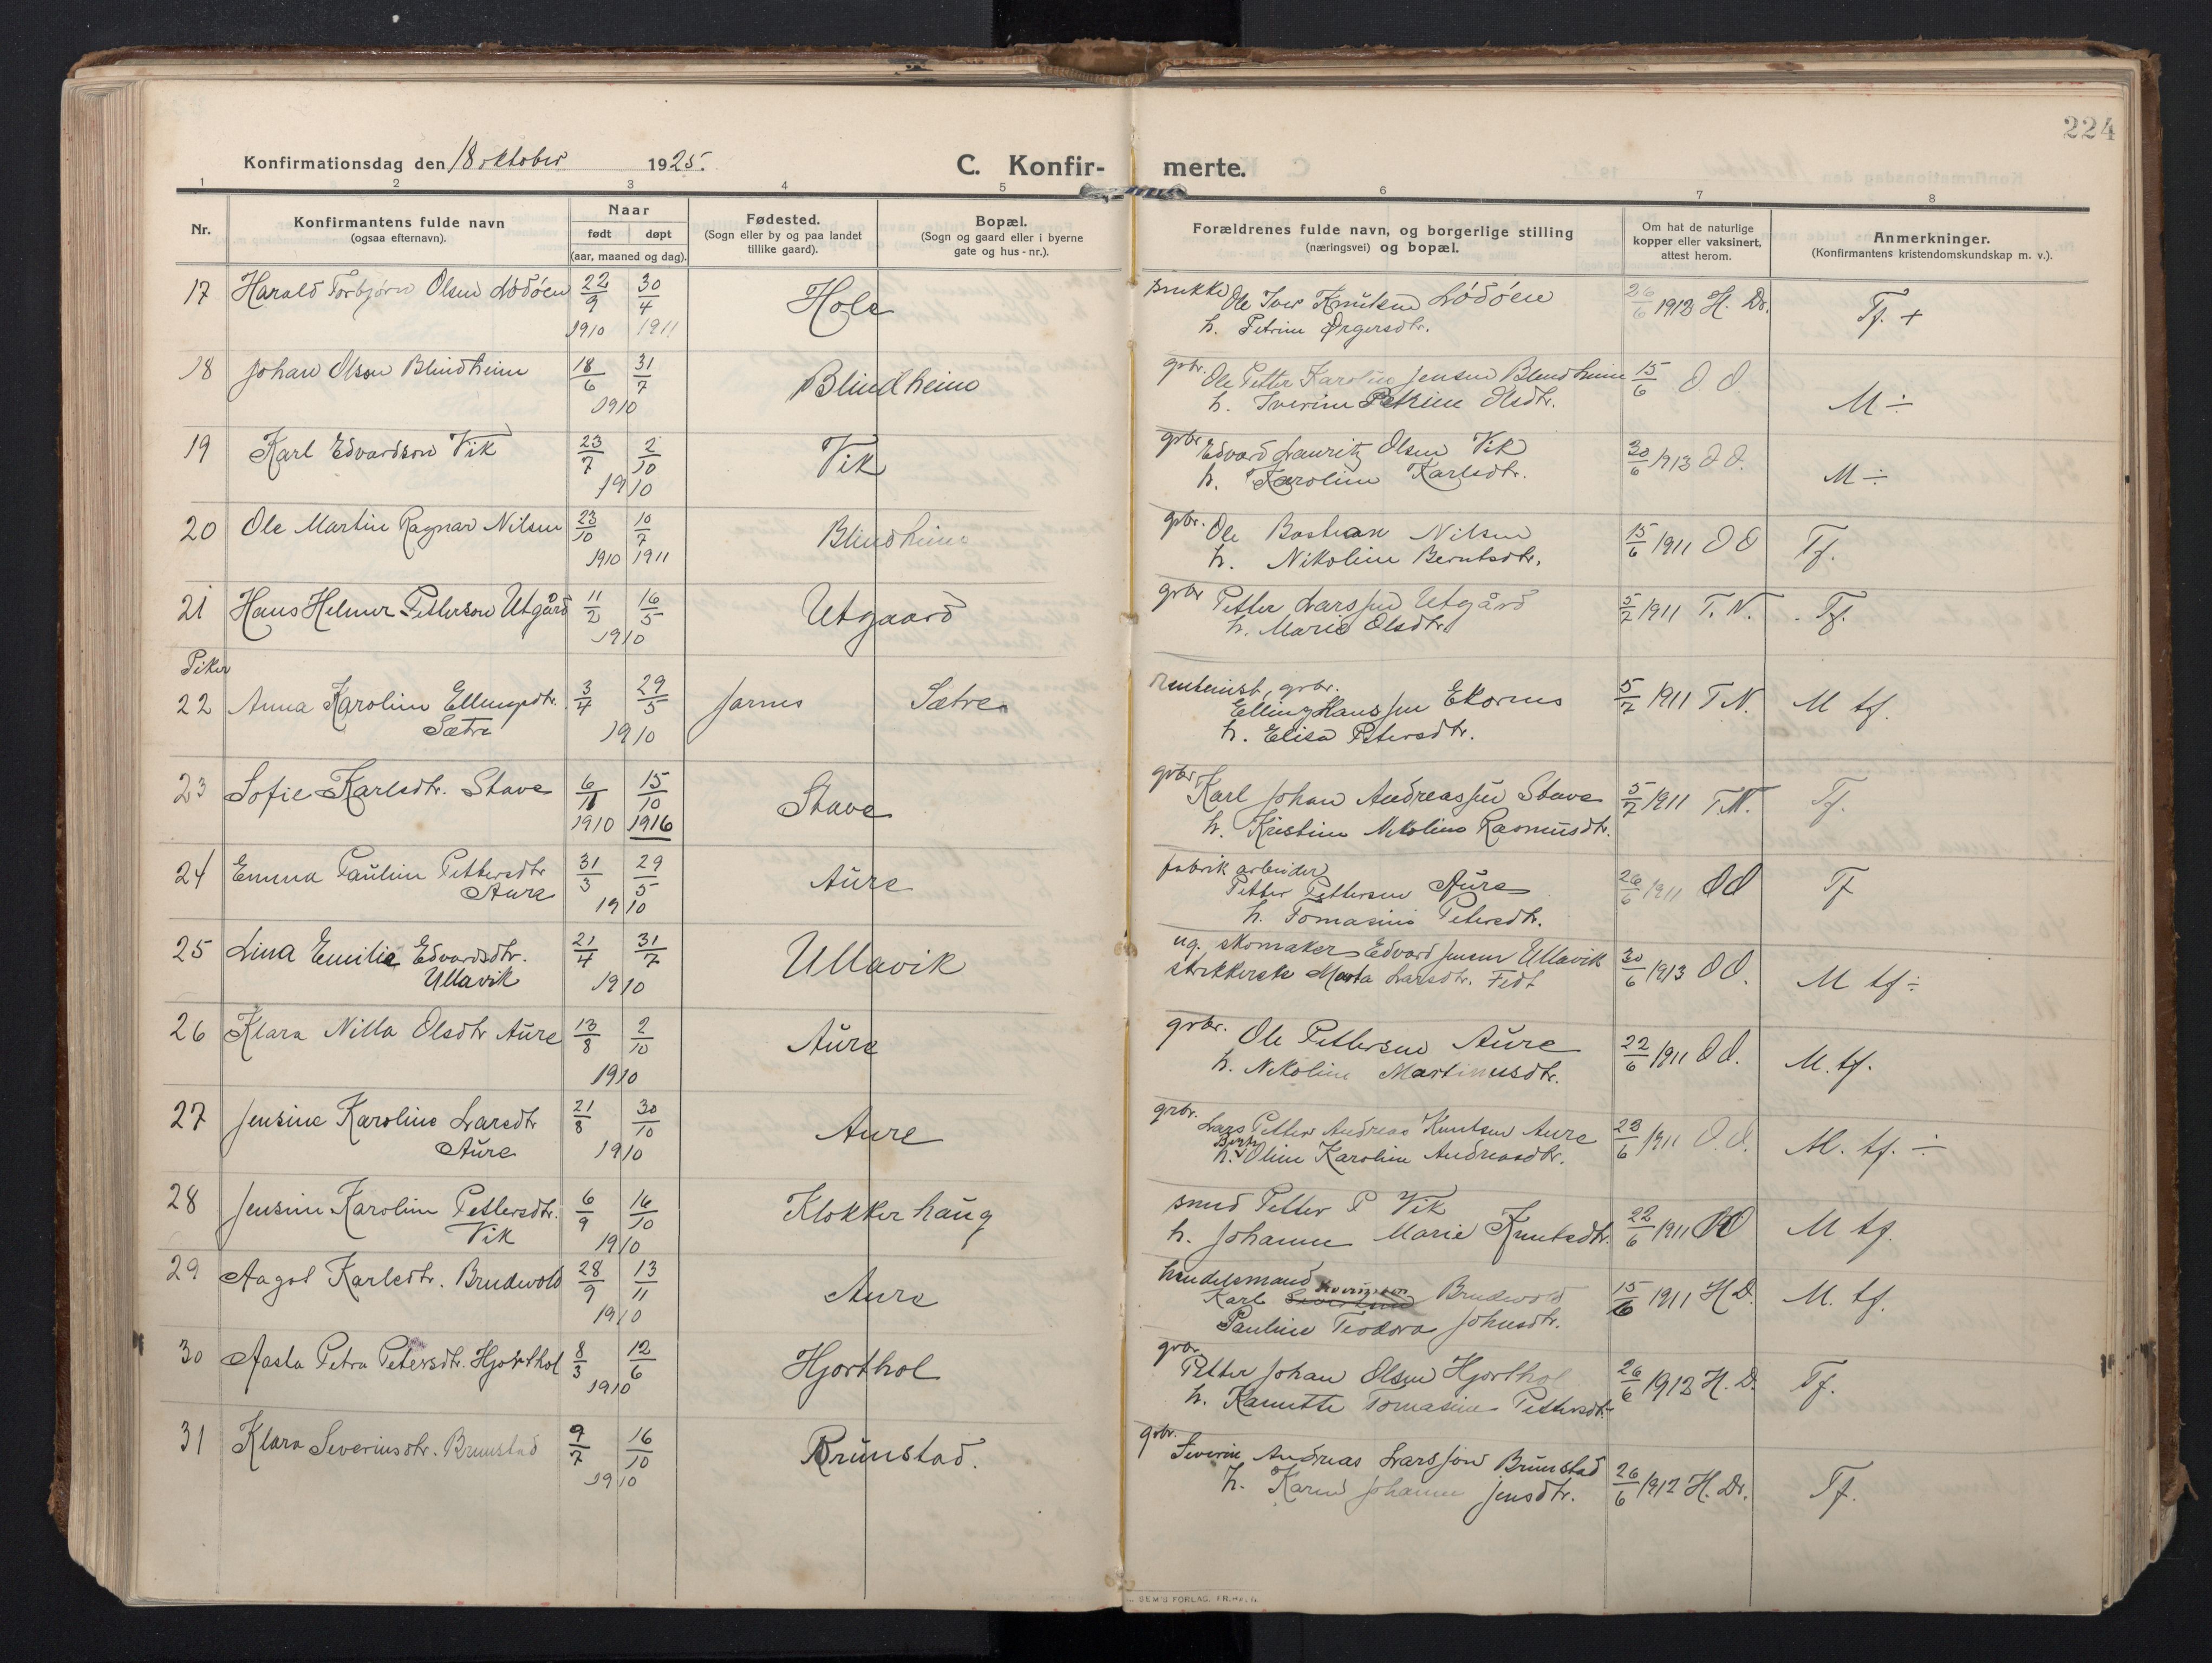 224
Konfirmationsdag den 18 oktober 1925.
C. Konfir- merte.
1 2 3 4 5 6 7 8
Nr.
Konfirmantens fulde navn
(ogsaa efternavn).
Naar
født døpt
(aar, maaned og dag).
Fødested.
(Sogn eller by og paa landet
tillike gaard).
Bopæl.
(Sogn og gaard eller i byerne
gate og hus-nr.).
Forældrenes fulde navn, og borgerlige stilling
(næringsvei) og bopæl.
Om hat de naturlige
kopper eller vaksinert,
attest herom.
Anmerkninger.
(Konfirmantens kristendomskundskap m. v.).
17 Harald Torbjørn Olsen Lødøen 22/9 1910 30/4 1911 Hole
Ole Iver Knutsen Lødøen
h. Petrine
26/6 1912 H. Dr. Tf. +
18 Johan Olson Blindheim 18/6 31/7 1910 Blindheim
gbr. Ole Petter Karolius Jensen Blindheim
h. Iverine Petrine Olsdtr.
15/6 O O M ÷
19 Karl Edvardson Vik 23/7 2/10 1910 Vik
gbr. Edvard Lauritz Olsen Vik
h. Karoline Karlsdtr.
30/6 1913 O O. M ÷
20 Ole Martin Ragnar Nilsen 23/10 1910 10/7 1911 Blindheim
gbr. Ole Bastian Nilsen
h. Nikoline Berntsdtr.
15/6 1911 O O Tf.
21 Hans Helmer Petterson Utgård 11/2 16/5 1910 Utgaard
gbr Petter Larssen Utgård
h. Marie Olsdtr.
5/7 1911 T. N. Tf.
Piker
22 Anna Karoline Ellingsdtr. Sætre 3/4 29/5 1910 Jarnes Sætre
gbr.
Elling Hanssen Ekornes
h. Elisa Petersdtr.
5/7 1911 T.N. M tf.
23 Sofie Karlsdtr. Stave 6/11 1910 15/10 1916 Stave
gbr Karl Johan Andreassen Stave
h. Kristine Nikoline Rasmusdtr.
5/7 1911 T.N. Tf.
24 Emma Pauline Pettersdtr Aure 31/3 29/5 1910 Aure
fabrik arbeider
Petter Pettersen Aure
h. Tomasine Petersdtr.
26/6 1911 O O Tf
25 Lina Emilie Edvardsdtr. Ullavik 21/4 31/7 1910 Ullavik
ug. skomaker Edvard Jensen Ullavik
strikkerske Marta Larsdtr. Fedt
30/6 1913 O O. M tf ÷
26 Klara Nilla Olsdtr Aure 13/8 2/10 1910 Aure
gbr. Ole Pettersen Aure
h. Nikoline Martinusdtr.
22/6 1911 O O. M. tf.
27 Jensine Karoline Larsdtr Aure 21/8 30/10 1910 Aure
gbr. Lars Petter Andreas Knutsen Aure
h. Berte Oline Karoline Andreasdtr.
23/6 1911 O. O. M. tf. ÷
28 Jensine Karoline Pettersdtr. Vik 6/9 16/10 1910 Klokkerhaug
smed Petter P Vik
h. Johanne Marie Knutsdtr.
22/6 1911 O O M tf.
29 Aagot Karlsdtr. Brudevold 28/9 13/11 1910 Aure
handelsmand
Karl Severinsen Brudevold
Pauline Teodora Johnsdtr.
15/6 1911 H D. M. tf.
30 Aasta Petra Petersdtr. Hjorthol 8/3 12/6 1910 Hjorthol
gbr. Petter Johan Olsen Hjorthol
h. Tomasine Pettersdtr.
26/6 1912 H. D. Tf.
31 Klara Severinsdtr. Brunstad 9/7 16/10 1910 Brunstad.
gbr. Severin Andreas Larsson Brunstad
h. Karen Johanne Jensdtr.
26/6 1912 H. Dr. Tf.
SEM'S FORLAG